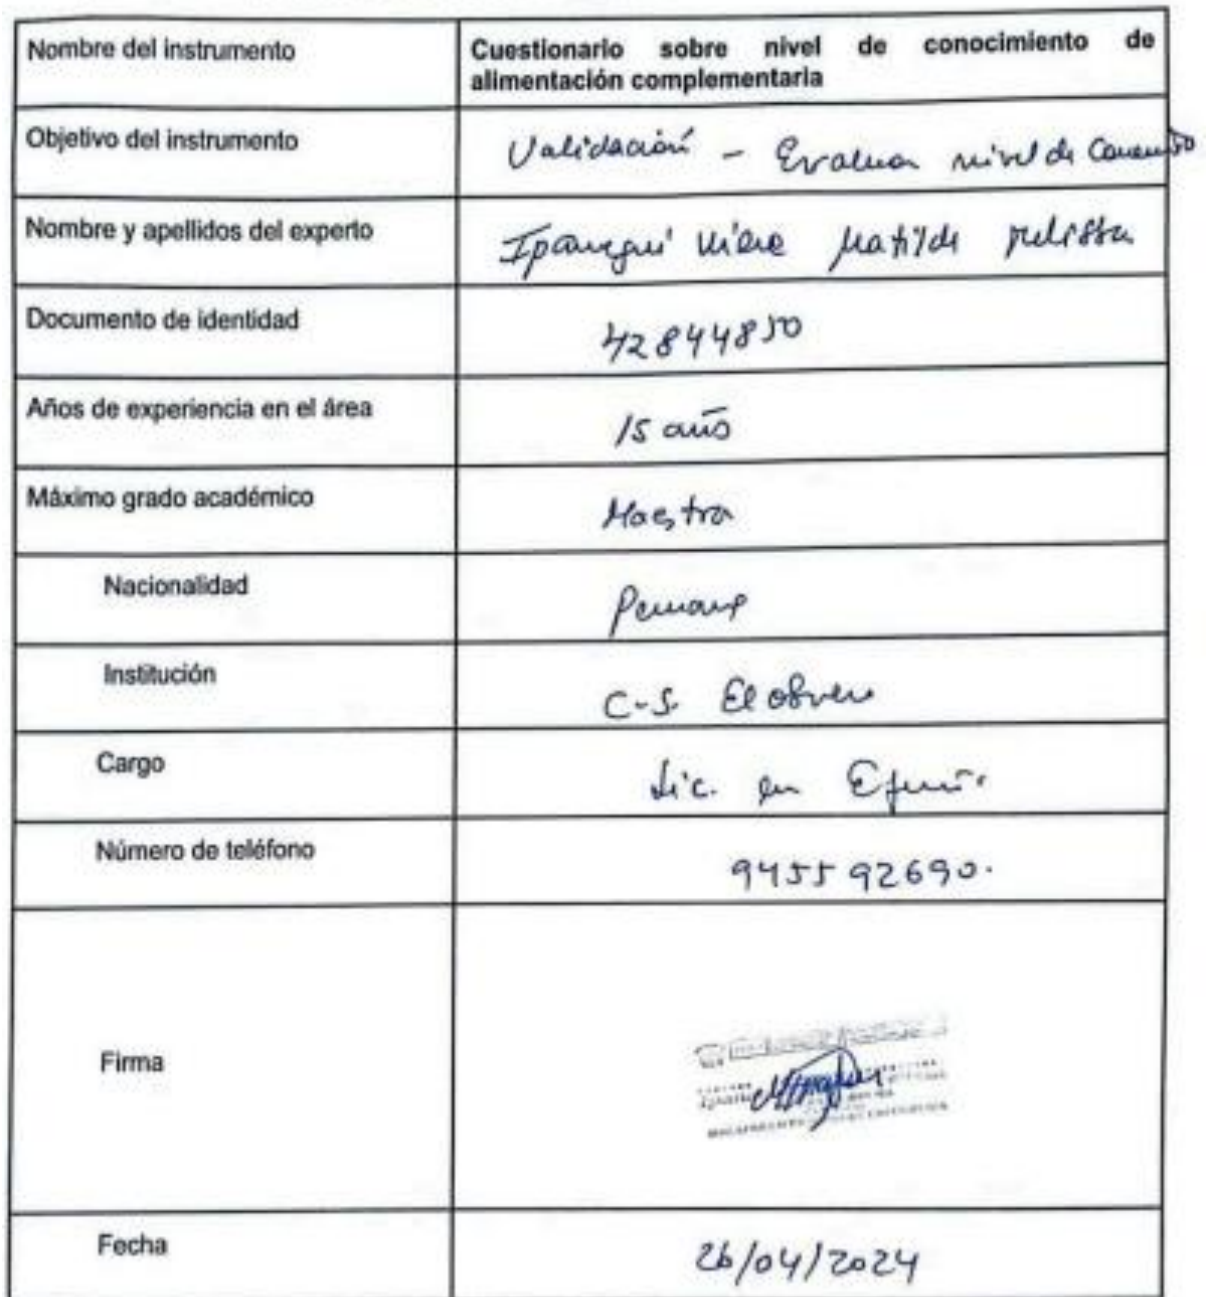 Nombre del instrumento
Cuestionario sobre nivel de conocimiento de
alimentación complementaria
Objetivo del instrumento
Validación - Evaluar nivel de
Nombre y apellidos del experto
Matilde
Documento de identidad
42844850
Años de experiencia en el área
15 año
Máximo grado académico
Maestra
Nacionalidad
Peruana
Institución
C.S. El obrero
Cargo
Lic. en
Número de teléfono
945592690.
Firma
Fecha
26/04/2024